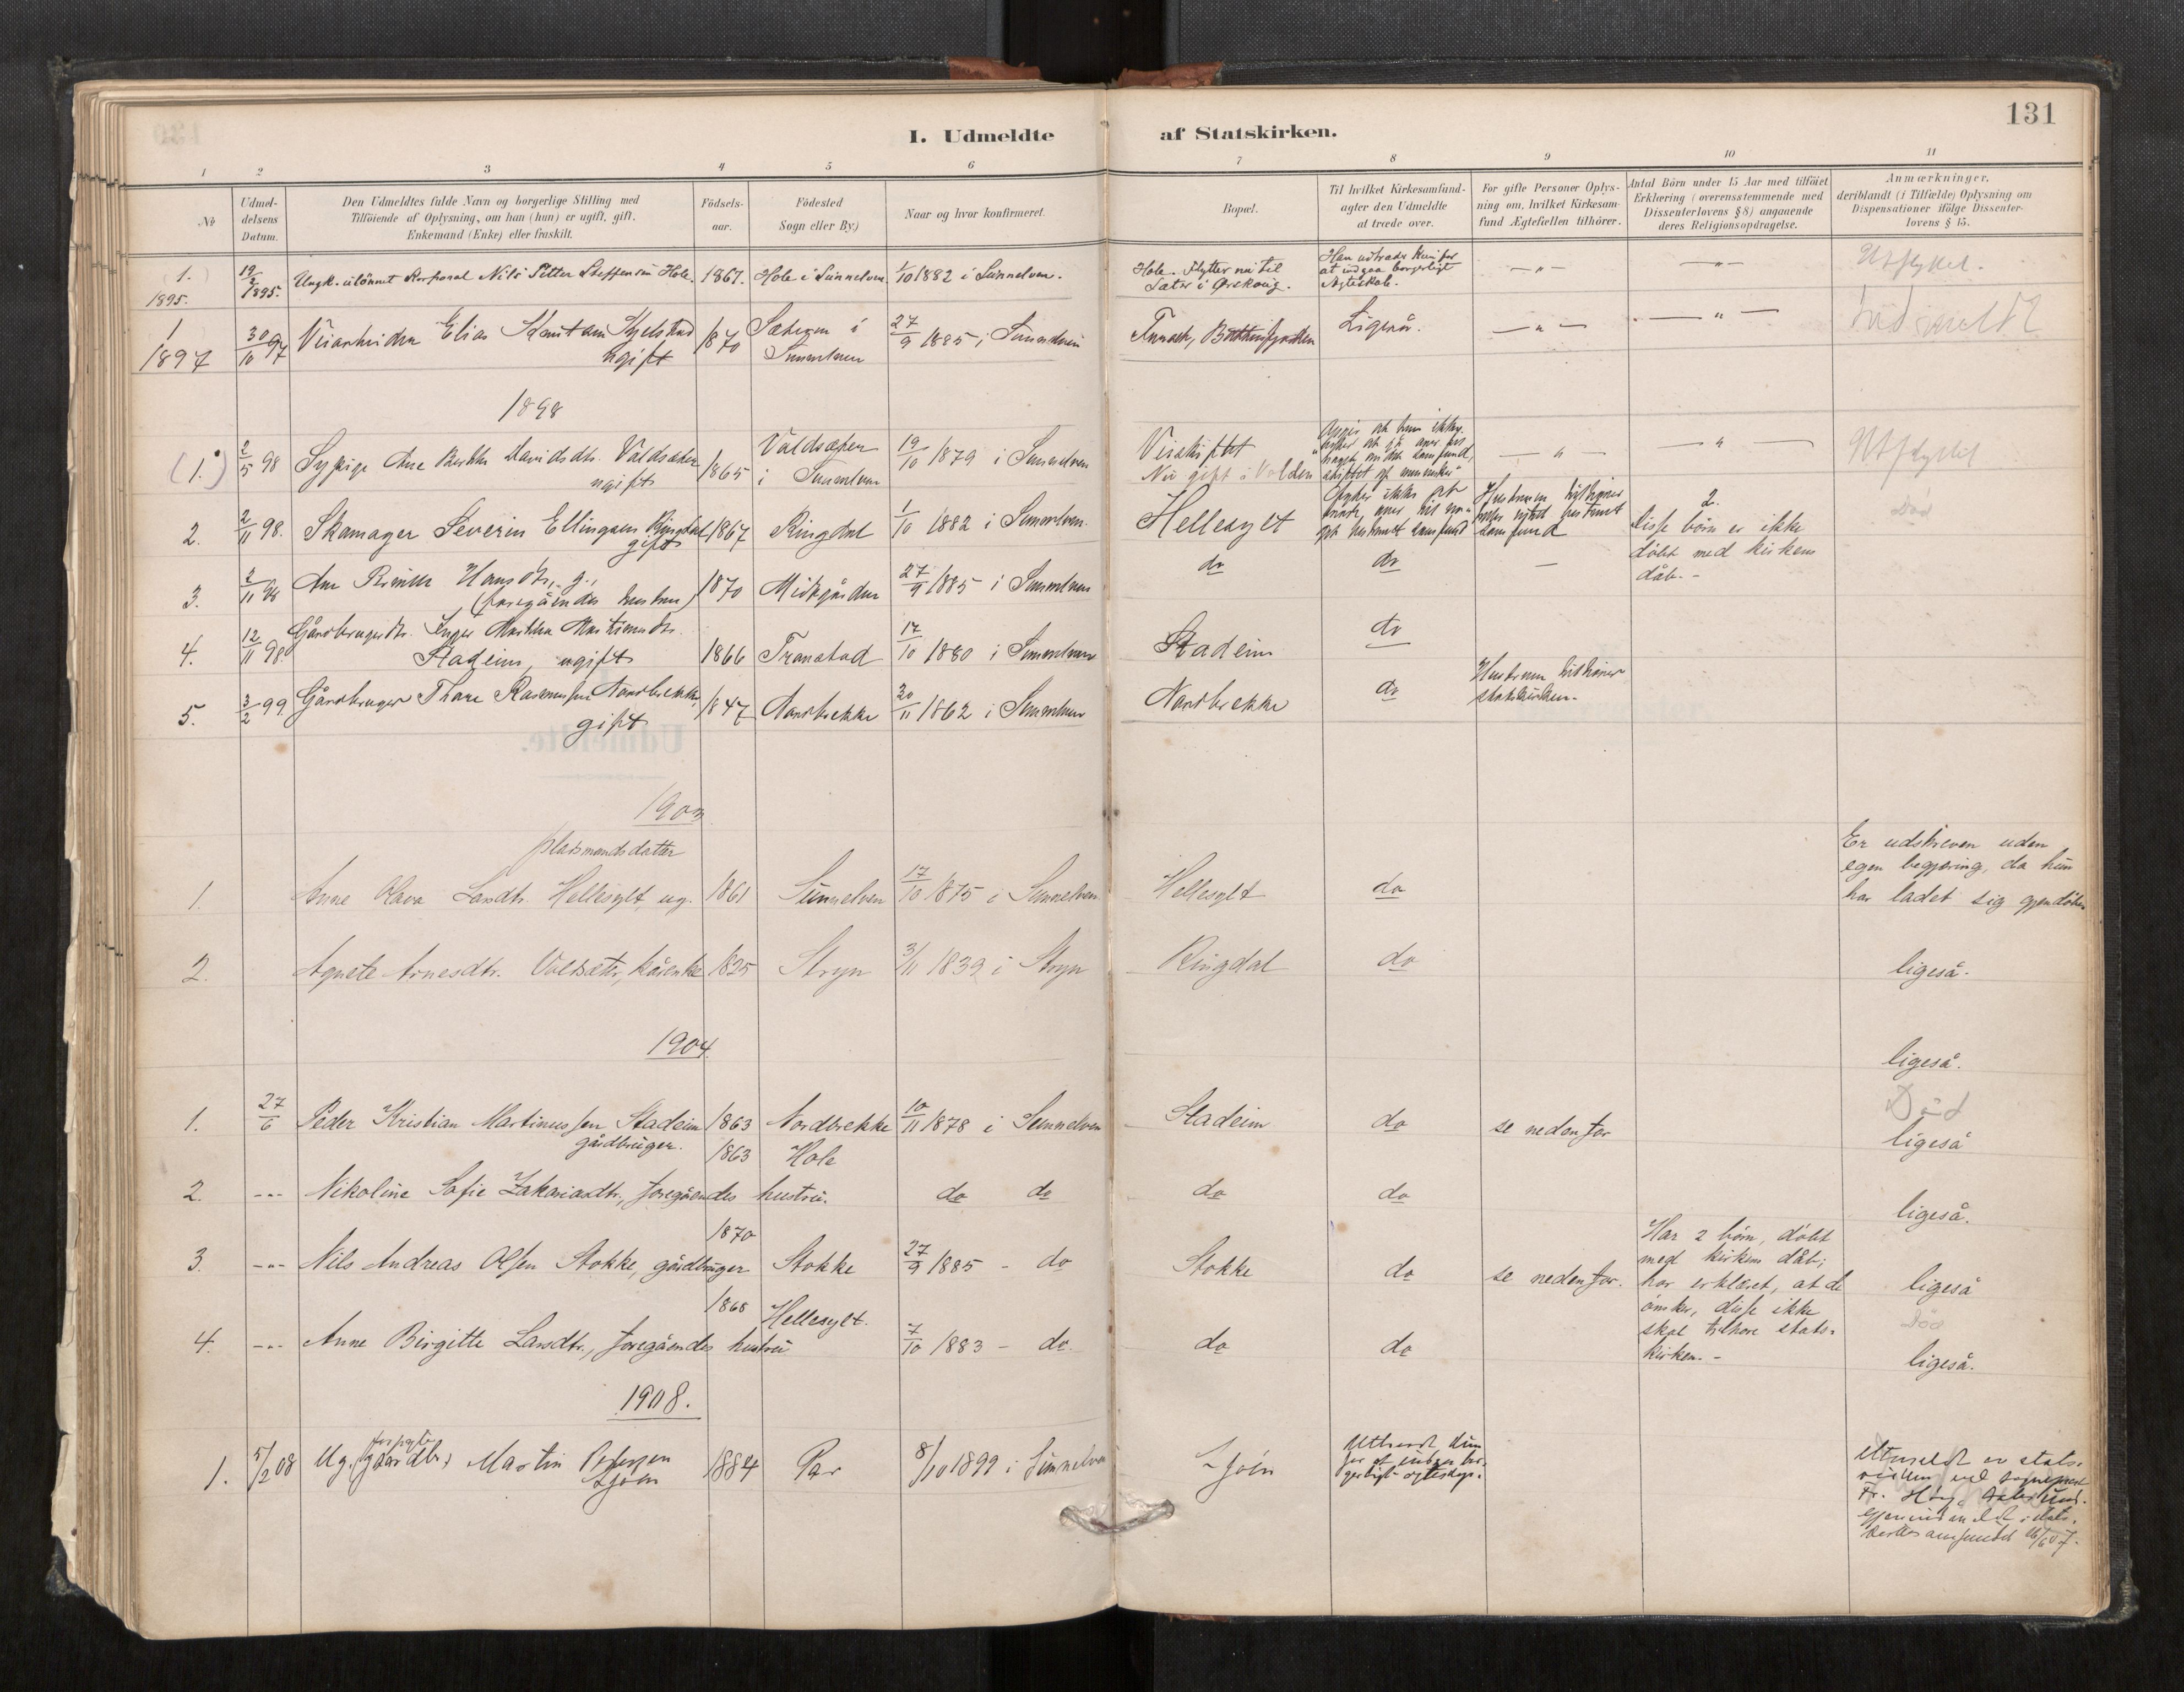 131
I. Udmeldte af Statskirken.
1 2 3 4 5 6 7 8 9 10 11
No
Udmel-
delsens
Datum.
Den Udmeldtes fulde Navn og borgerlige Stilling med
Tilføiende af Oplysning, om han (hun) er ugift, gift,
Enkemand (Enke) eller fraskilt.
Fødsels-
aar.
Fødested
Sogn eller By.)
Naar og hvor konfirmeret.
Bopæl.
Til hvilket Kirkesamfund-
agter den Udmeldte
at træde over.
For gifte Personer Oplys-
ning om, hvilket Kirkesam-
fund Ægtefællen tilhører.
Antal Børn under 15 Aar med tilføiet
Erklæring (overensstemmende med
Dissenterlovens § 8) angaaende
deres Religionsopdragelse.
Anmærkninger,
deriblandt (i Tilfælde) Oplysning om
Dispensationer ifølge Dissenter-
lovens § 15.
1.
1895.
19/2 1895.
Ungk. ulönnet Korporal Nils Petter Steffensen Hole.
1867.
Hole i Sunnelven.
1/10 1882 i Sunnelven.
Hole. Flytter nu til
Sæter i Ørskoug.
Han udtræder kun for
at indgaa borgerligt
Ægteskab.
— " —
— " —
Utflyttet.
1
1897
30/10 97
Veiarbeider Elias Knutsen Kjelstad
ugift
1870
Sæteren i
Sunnelven
27/9 1885 i Sunnelven
Ligeså.
— " —
— " —
Indmeldt
1898
(1.)
2/5 98
Sypige Ane Berthe Davidsdtr. Valdsæter
ugift
1865
Valdsæter
i Sunnelven
19/10 1879 i Sunnelven
Nu gift i Volden
— " —
— " —
Utflyttet
2.
2/11 98.
Skomager Severin Ellingsen Ringdal
gift
1867
Ringdal
1/10 1882 i Sunnelven.
Hellesylt
Hustruen tilhører
samfund
2.
Disse børn er ikke
døbt med kirkens
dåb. -
Död
3.
2/11 98
Hansdtr., g.,
(foregåendes hustru)
1870
Midtgården
27/9 1885 i Sunnelven
do
do
—
4.
12/11 98.
Gårdbrugerdtr. Inger Martha Martinusdtr.
Stadeim, ugift
1866
Tronstad
17/10 1880 i Sunnelven
Stadeim
do
5.
3/2 99
Gårdbruger Thore Rasmussen Nordbrekke,
gift
1847
Nordbrekke
30/11 1862 i Sunnelven
Nordbrekke
do
Hustruen tilhører
statskirken.
1903
pladsmandsdatter
1.
Anne Olava Larsdtr. Hellesylt, ug.
1861
Sunnelven
17/10 1875 i Sunnelven.
Hellesylt
do
Er udskreven uden
egen begjæring, da hun
har ladet sig gjendöbe
2.
Agnete Arnesdtr. Voldsæter, kårenke
1825
Stryn
3/11 1839 i Stryn
Ringdal
do
ligeså.
1904
ligeså.
1.
27/6
Peder Kristian Martinussen Stadeim
gårdbruger.
1863
Nordbrekke
10/11 1878 i Sunnelven
Stadeim
do
se nedenfor
Död
ligeså
2.
---
Nikoline Sofie Zakariasdtr., foregåendes hustru.
1863
Hole
do do
do
do
ligeså.
3.
---
Nils Andreas Olsen Stokke, gårdbruger
1870
Stokke
27/9 1885 - do
Stokke
do
se nedenfor.
Har 2 börn, döbt
med kirkens dåb;
har erklæret, at de
önsker, disse ikke
skal tilhøre stats-
kirken. -
ligeså
Död
4.
---
Anne Birgitte Larsdtr., foregåendes hustru
1868
Hellesylt.
7/10 1883 - do.
do
do
ligeså.
1908.
1.
5/2 08
Ug. forpagter
Gaardbr. Martin Pedersen
Ljøen
1884
Par
8/10 1899 i Sunnelven
Ljöen
Uttraadt kun
for at indgaa bor-
gerligt ægteskap.